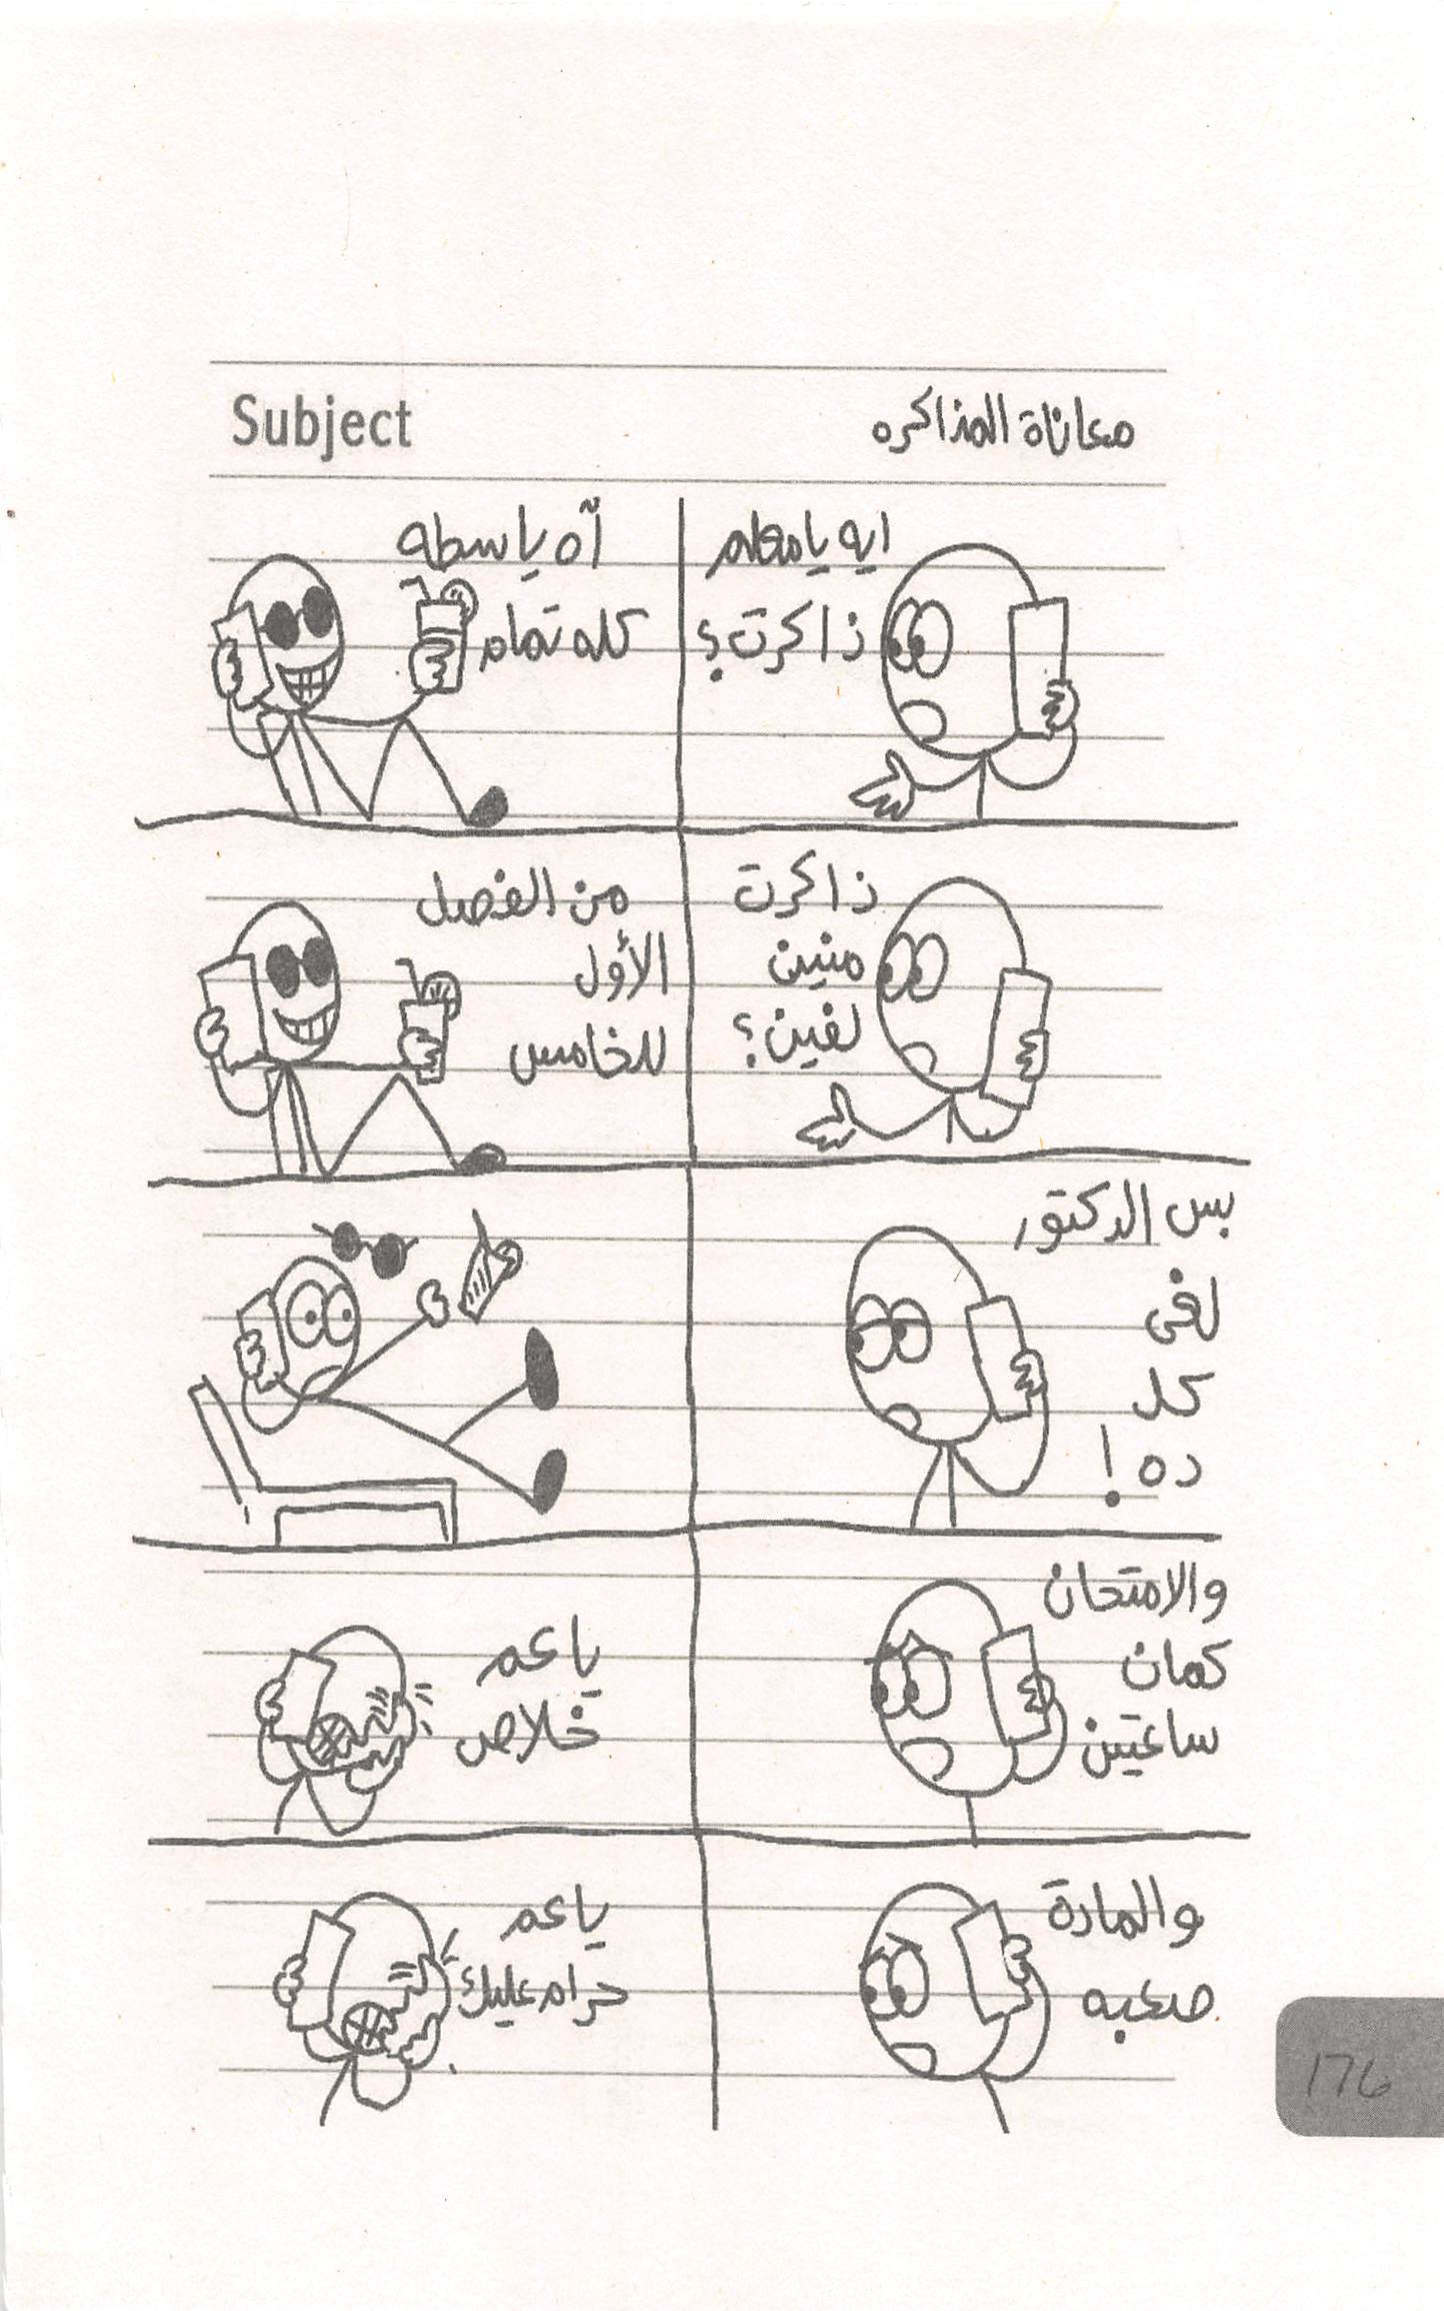 Subject
معاناة المذاكره
ايه يا معلم
ذاكرت؟
آه ياسطه
كله تمام
ذاكرت
منين
لفين؟
من الفصل
الأول
للخامس
بس الدكتور
لغى
كل
ده!
والامتحان
كمان
ساعتين
يا عم
خلاص
والمادة
صعبه
يا عم
حرام عليك
176